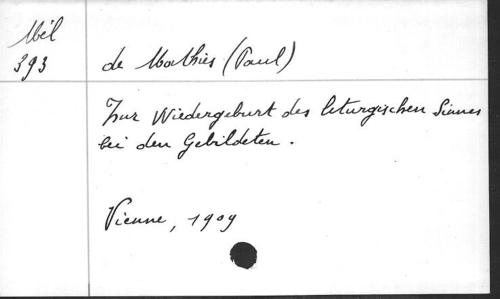 Mél
393
de Mathies (Paul)
Zur Wiedergeburt des liturgischen Sinnes
bei den Gebildeten.
Vienne, 1909